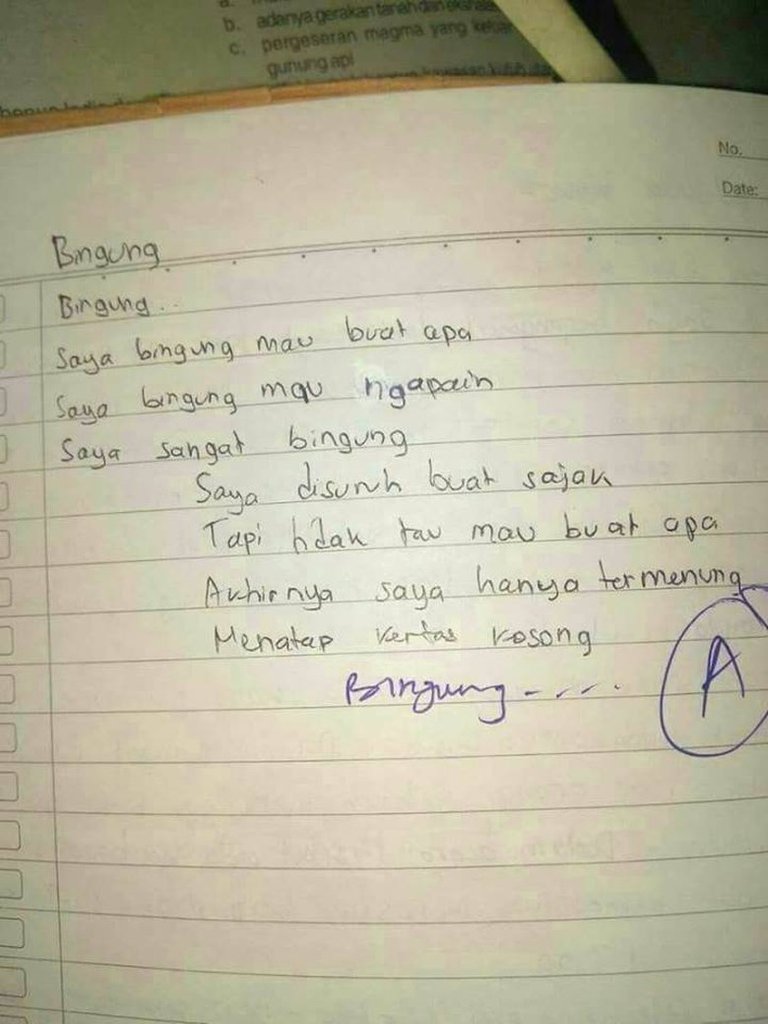 b. adanya gerakan tanah dan
c. pergeseran magma yang keluar
gunung api
No.
Date:
Bingung
Bingung..
Saya bingung mau buat apa
Saya bingung mau ngapain
Saya sangat bingung
Saya disuruh buat sajak
Tapi tidak tau mau buat apa
Akhirnya saya hanya termenung
Menatap kertas kosong
Bingung - . . . .
A